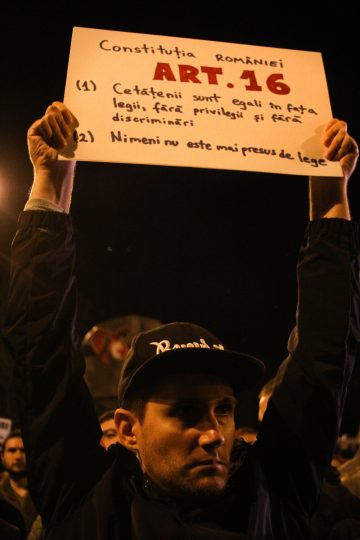 Constituția ROMÂNIEI
ART. 16
(1) Cetățenii sunt egali în fața
legii, fără privilegii și fără
discriminări
(2) Nimeni nu este mai presus de lege